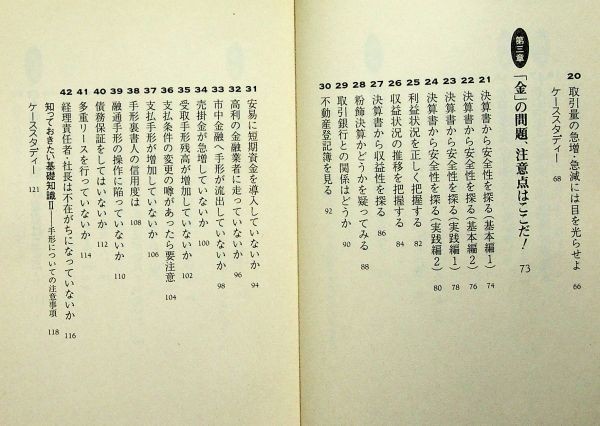 20 取引量の急増・急減には目を光らせよ 66
ケーススタディー 68
第三章 「金」の問題、注意点はここだ! 73
21 決算書から安全性を探る(基本編1) 74
22 決算書から安全性を探る(基本編2) 76
23 決算書から安全性を探る(実践編1) 78
24 決算書から安全性を探る(実践編2) 80
25 利益状況を正しく把握する 82
26 収益状況の推移を把握する 84
27 決算書から収益性を探る 86
28 粉飾決算かどうかを疑ってみる 88
29 取引銀行との関係はどうか 90
30 不動産登記簿を見る 92
31 安易に短期資金を導入していないか 94
32 高利の金融業者に走っていないか 96
33 市中金融へ手形が流出していないか 98
34 売掛金が急増していないか 100
35 受取手形残高が増加していないか 102
36 支払条件の変更の噂があったら要注意 104
37 支払手形が増加していないか 106
38 手形裏書人の信用度は 108
39 融通手形の操作に陥っていないか 110
40 債務保証をしてはいないか 112
41 多重リースを行っていないか 114
42 経理責任者・社長は不在がちになっていないか 116
知っておきたい基礎知識Ⅱ——手形についての注意事項 118
ケーススタディー 121